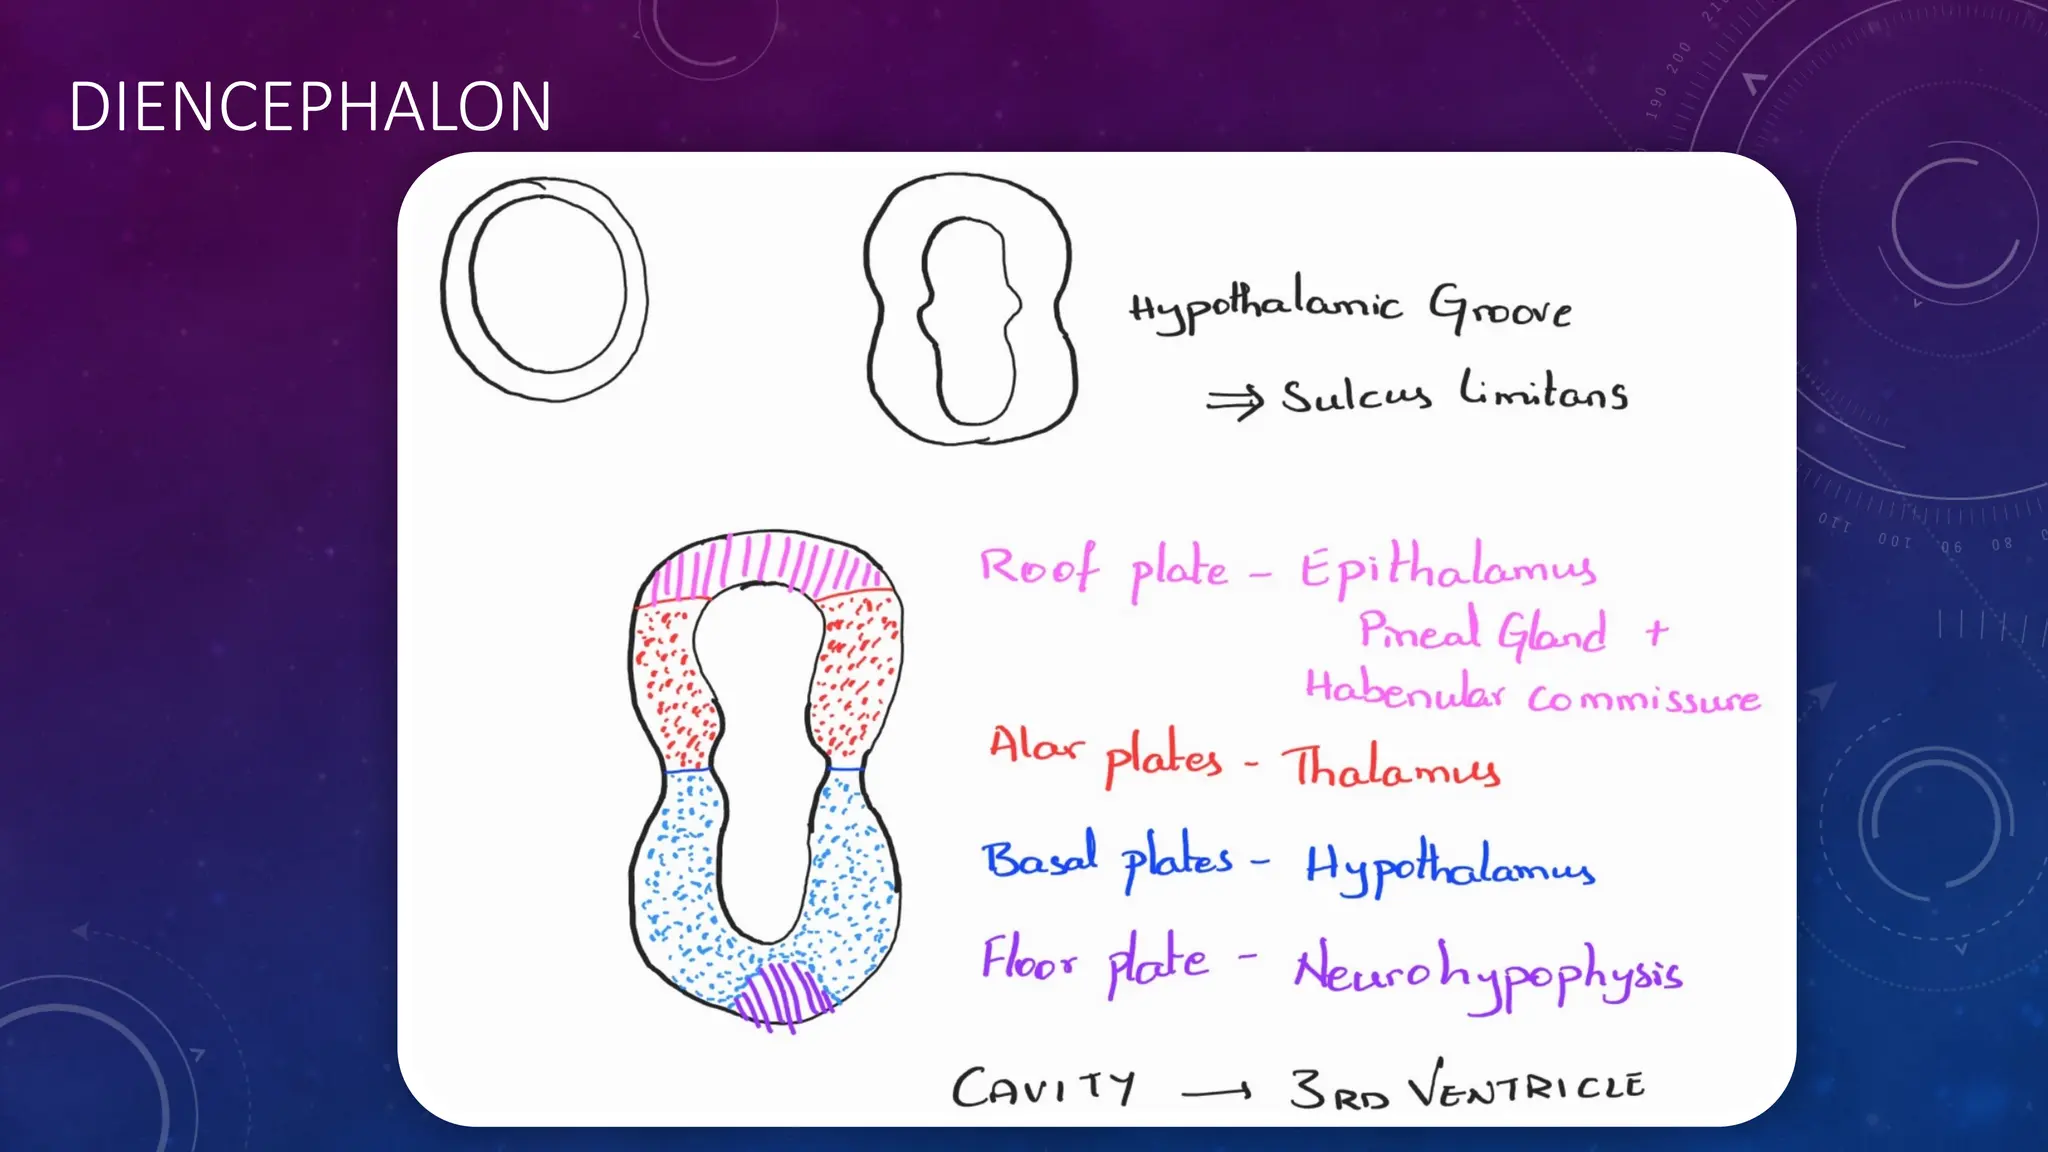 DIENCEPHALON
Hypothalamic Groove
⇒ Sulcus limitans
Roof plate - Epithalamus
Pineal Gland +
Habenular commissure
Alar plates - Thalamus
Basal plates - Hypothalamus
Floor plate - Neurohypophysis
CAVITY → 3RD VENTRICLE
190 200 210
110 100 90 80